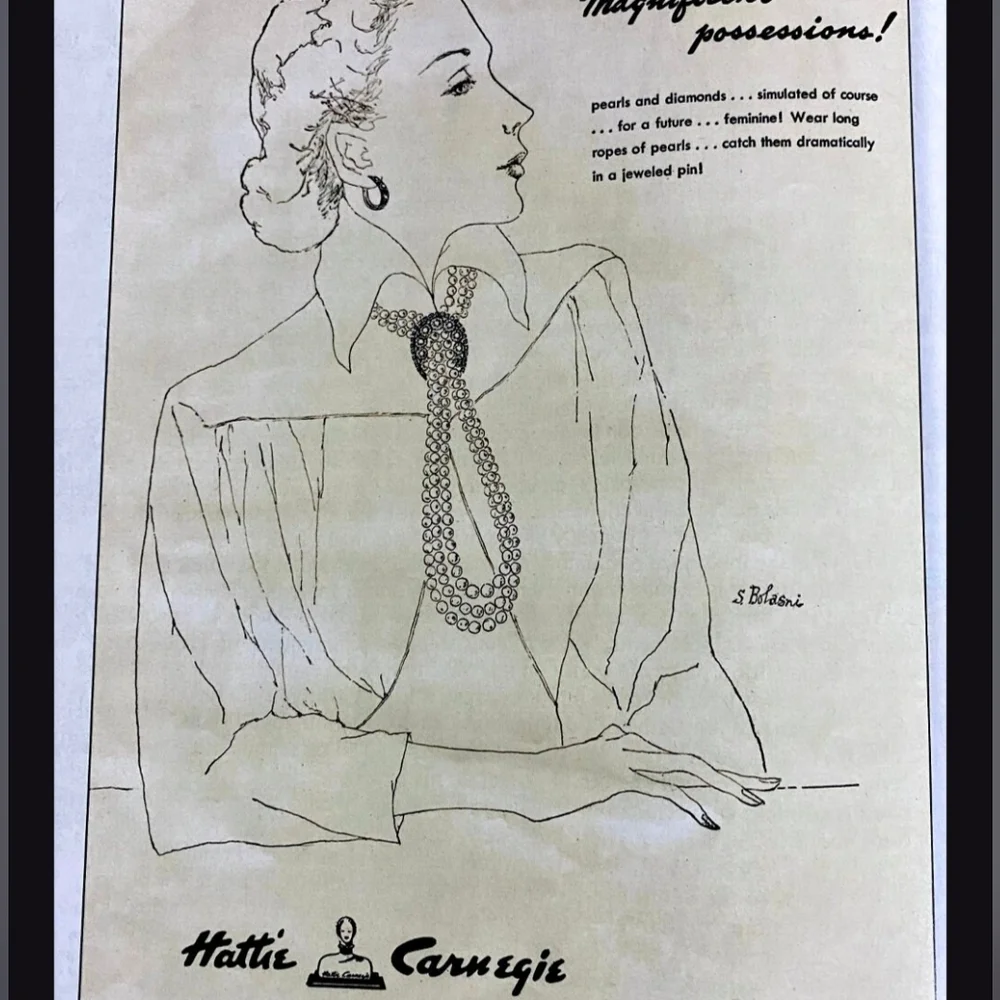 Magnificent
possessions!
pearls and diamonds . . . simulated of course
. . . for a future . . . feminine! Wear long
ropes of pearls . . . catch them dramatically
in a jeweled pin!
S. Bolasni
Hattie Carnegie
Hattie Carnegie